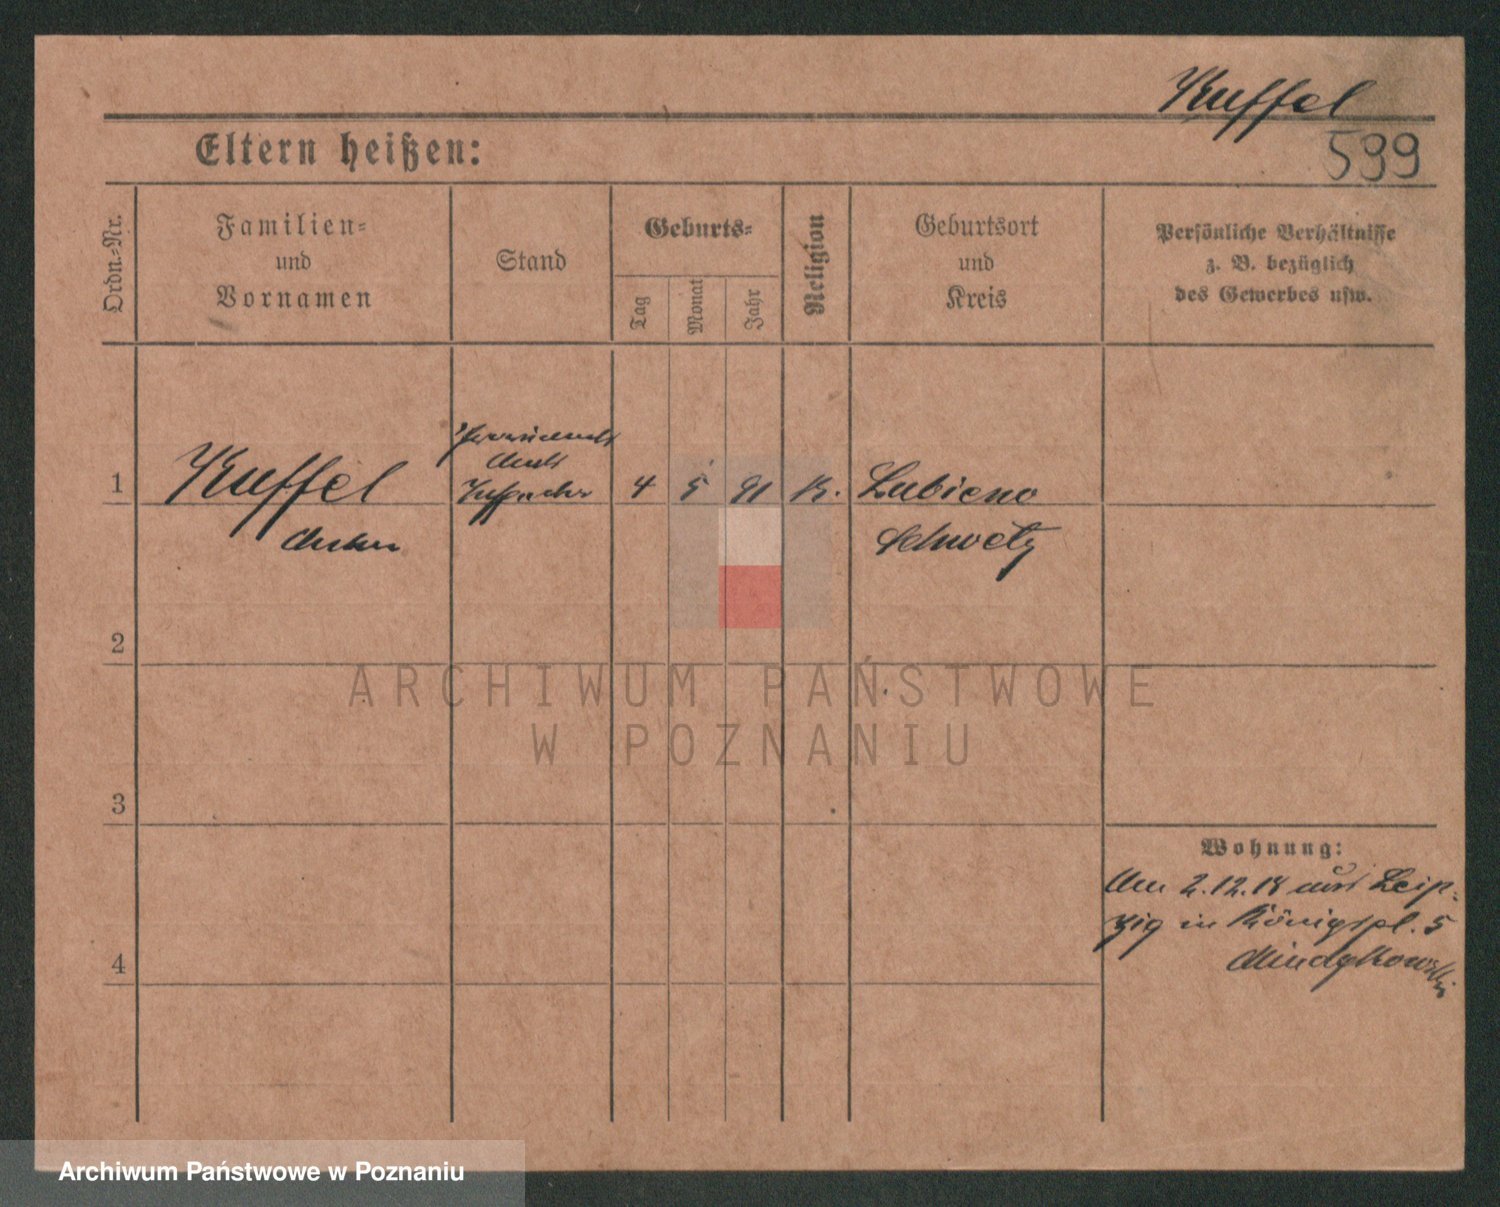 Kuffel
599
Eltern heißen:
Ordn.-Nr.
Familien-
und
Vornamen
Stand
Geburts-
Tag
Monat
Jahr
Religion
Geburtsort
und
Kreis
Persönliche Verhältnisse
z. B. bezüglich
des Gewerbes usw.
1
Kuffel
4
5
91
K.
Lubieno
Schwetz
2
3
4
Wohnung:
Am 2.12.18 aus Leip-
zig in Königspl. 5
Mindykowski
ARCHIWUM PAŃSTWOWE
W POZNANIU
Archiwum Państwowe w Poznaniu